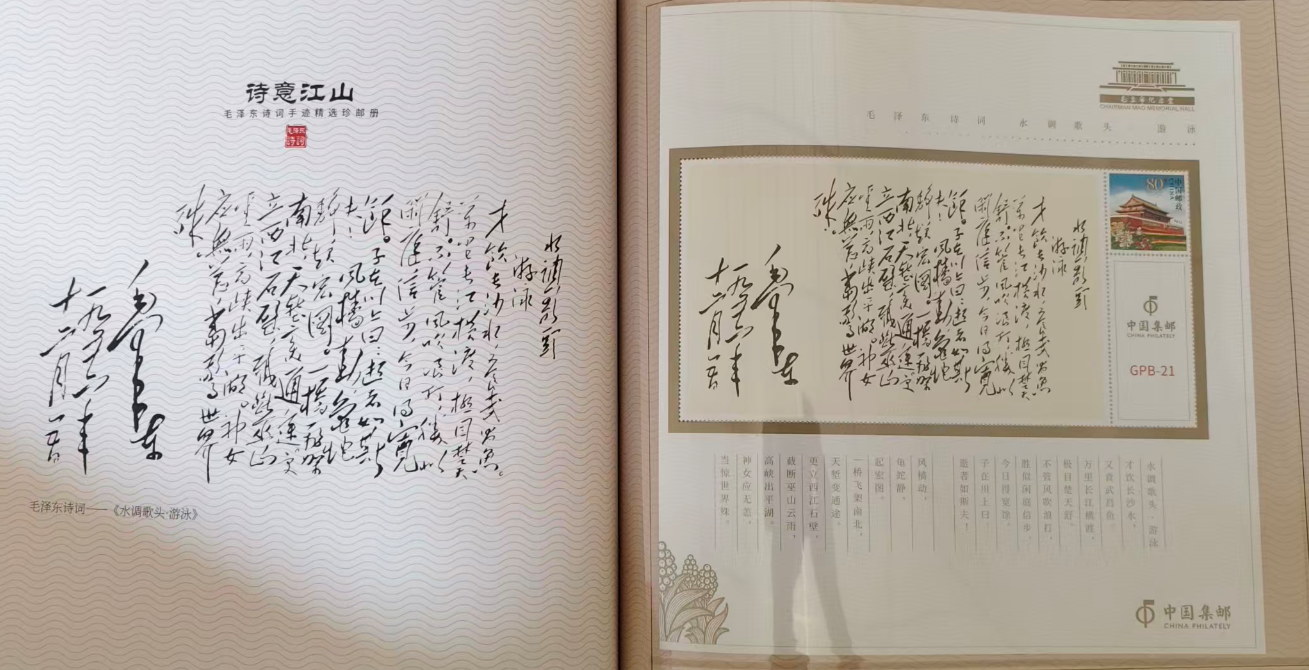 诗意江山
毛泽东诗词手迹精选珍邮册
毛泽东
诗词
水調歌頭
游泳
才飲長沙水,又食武昌魚。
萬里長江橫渡,極目楚天
舒。不管風吹浪打,勝似
閑庭信步,今日得寬
餘。子在川上曰:逝者如斯
夫!風檣動,龜蛇
靜,起宏圖。一橋飛架
南北,天塹變通途。更
立西江石壁,截斷巫山
雲雨,高峽出平湖。神女
應無恙,當驚世界
殊。
毛澤東
一九五六年
十二月
毛泽东诗词——《水调歌头·游泳》
毛主席纪念堂
CHAIRMAN MAO MEMORIAL HALL
毛泽东诗词 水调歌头 游泳
水調歌頭
游泳
才飲長沙水,又食武昌魚。
萬里長江橫渡,極目楚天
舒。不管風吹浪打,勝似
閑庭信步,今日得寬
餘。子在川上曰:逝者如斯
夫!風檣動,龜蛇
靜,起宏圖。一橋飛架
南北,天塹變通途。更
立西江石壁,截斷巫山
雲雨,高峽出平湖。神女
應無恙,當驚世界
殊。
毛澤東
一九五六年
十二月
80
中国邮政
中国集邮
CHINA PHILATELY
GPB-21
水调歌头·游泳
才饮长沙水,
又食武昌鱼。
万里长江横渡,
极目楚天舒。
不管风吹浪打,
胜似闲庭信步,
今日得宽馀。
子在川上曰:
逝者如斯夫!
风樯动,
龟蛇静,
起宏图。
一桥飞架南北,
天堑变通途。
更立西江石壁,
截断巫山云雨,
高峡出平湖。
神女应无恙,
当惊世界殊。
中国集邮
CHINA PHILATELY